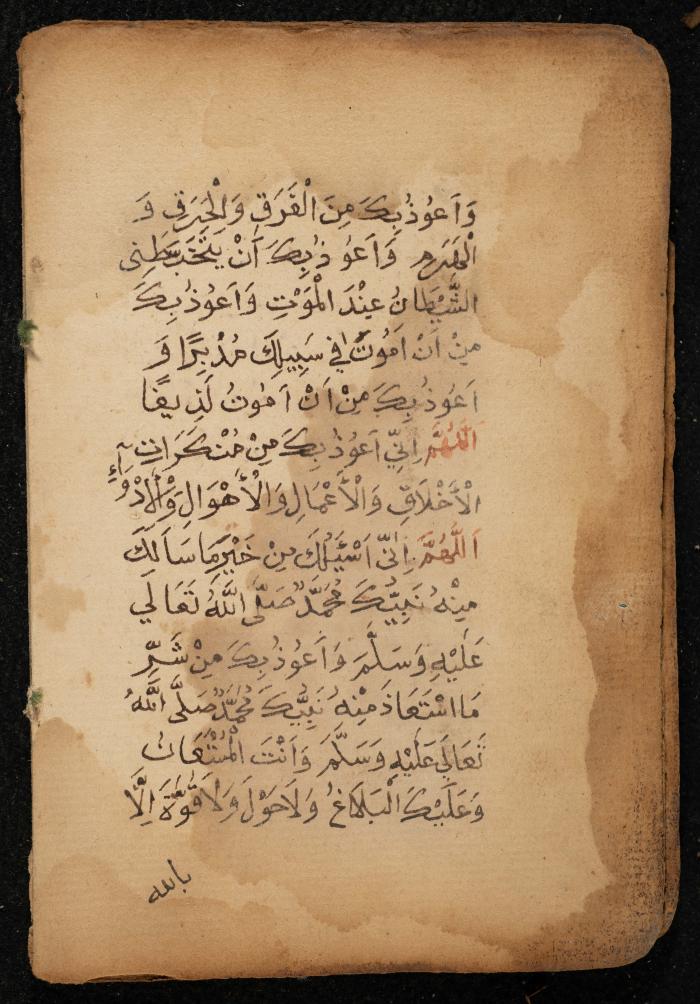 وَاَعُوذُبِكَ مِنَ الْغَرَقِ وَالْحَرَقِ وَ
الْهَرَمِ وَاَعُوذُبِكَ اَنْ يَتَخَبَّطَنِى
الشَّيْطَانُ عِنْدَ الْمَوْتِ وَاَعُوذُبِكَ
مِنْ اَنْ اَمُوتَ فِي سَبِيلِكَ مُدْبِرًا وَ
اَعُوذُبِكَ مِنْ اَنْ اَمُوتُ لَذِيغًا
اَللّٰهُمَّ اِنِّي اَعُوذُبِكَ مِنْ مُنْكَرَاتِ
الْأَخْلَاقِ وَالْأَعْمَالِ وَالْأَهْوَالِ وَالْأَدْوَآءِ
اَللّٰهُمَّ اِنِّي اَسْئَلُكَ مِنْ خَيْرِ مَا سَاَلَكَ
مِنْهُ نَبِيُّكَ مُحَمَّدٌ صَلَّى اللّٰهُ تَعَالَي
عَلَيْهِ وَسَلَّمَ وَاَعُوذُبِكَ مِنْ شَرِّ
مَا اسْتَعَاذَ مِنْهُ نَبِيُّكَ مُحَمَّدٌ صَلَّى اللّٰهُ
تَعَالَي عَلَيْهِ وَسَلَّمَ وَاَنْتَ الْمُسْتَعَانُ
وَعَلَيْكَ الْبَلَاغُ وَلَا حَوْلَ وَلَا قُوَّةَ اِلَّا
بالله